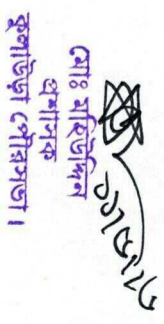 মোঃ মহিউদ্দিন
প্রশাসক
কুলাউড়া পৌরসভা।